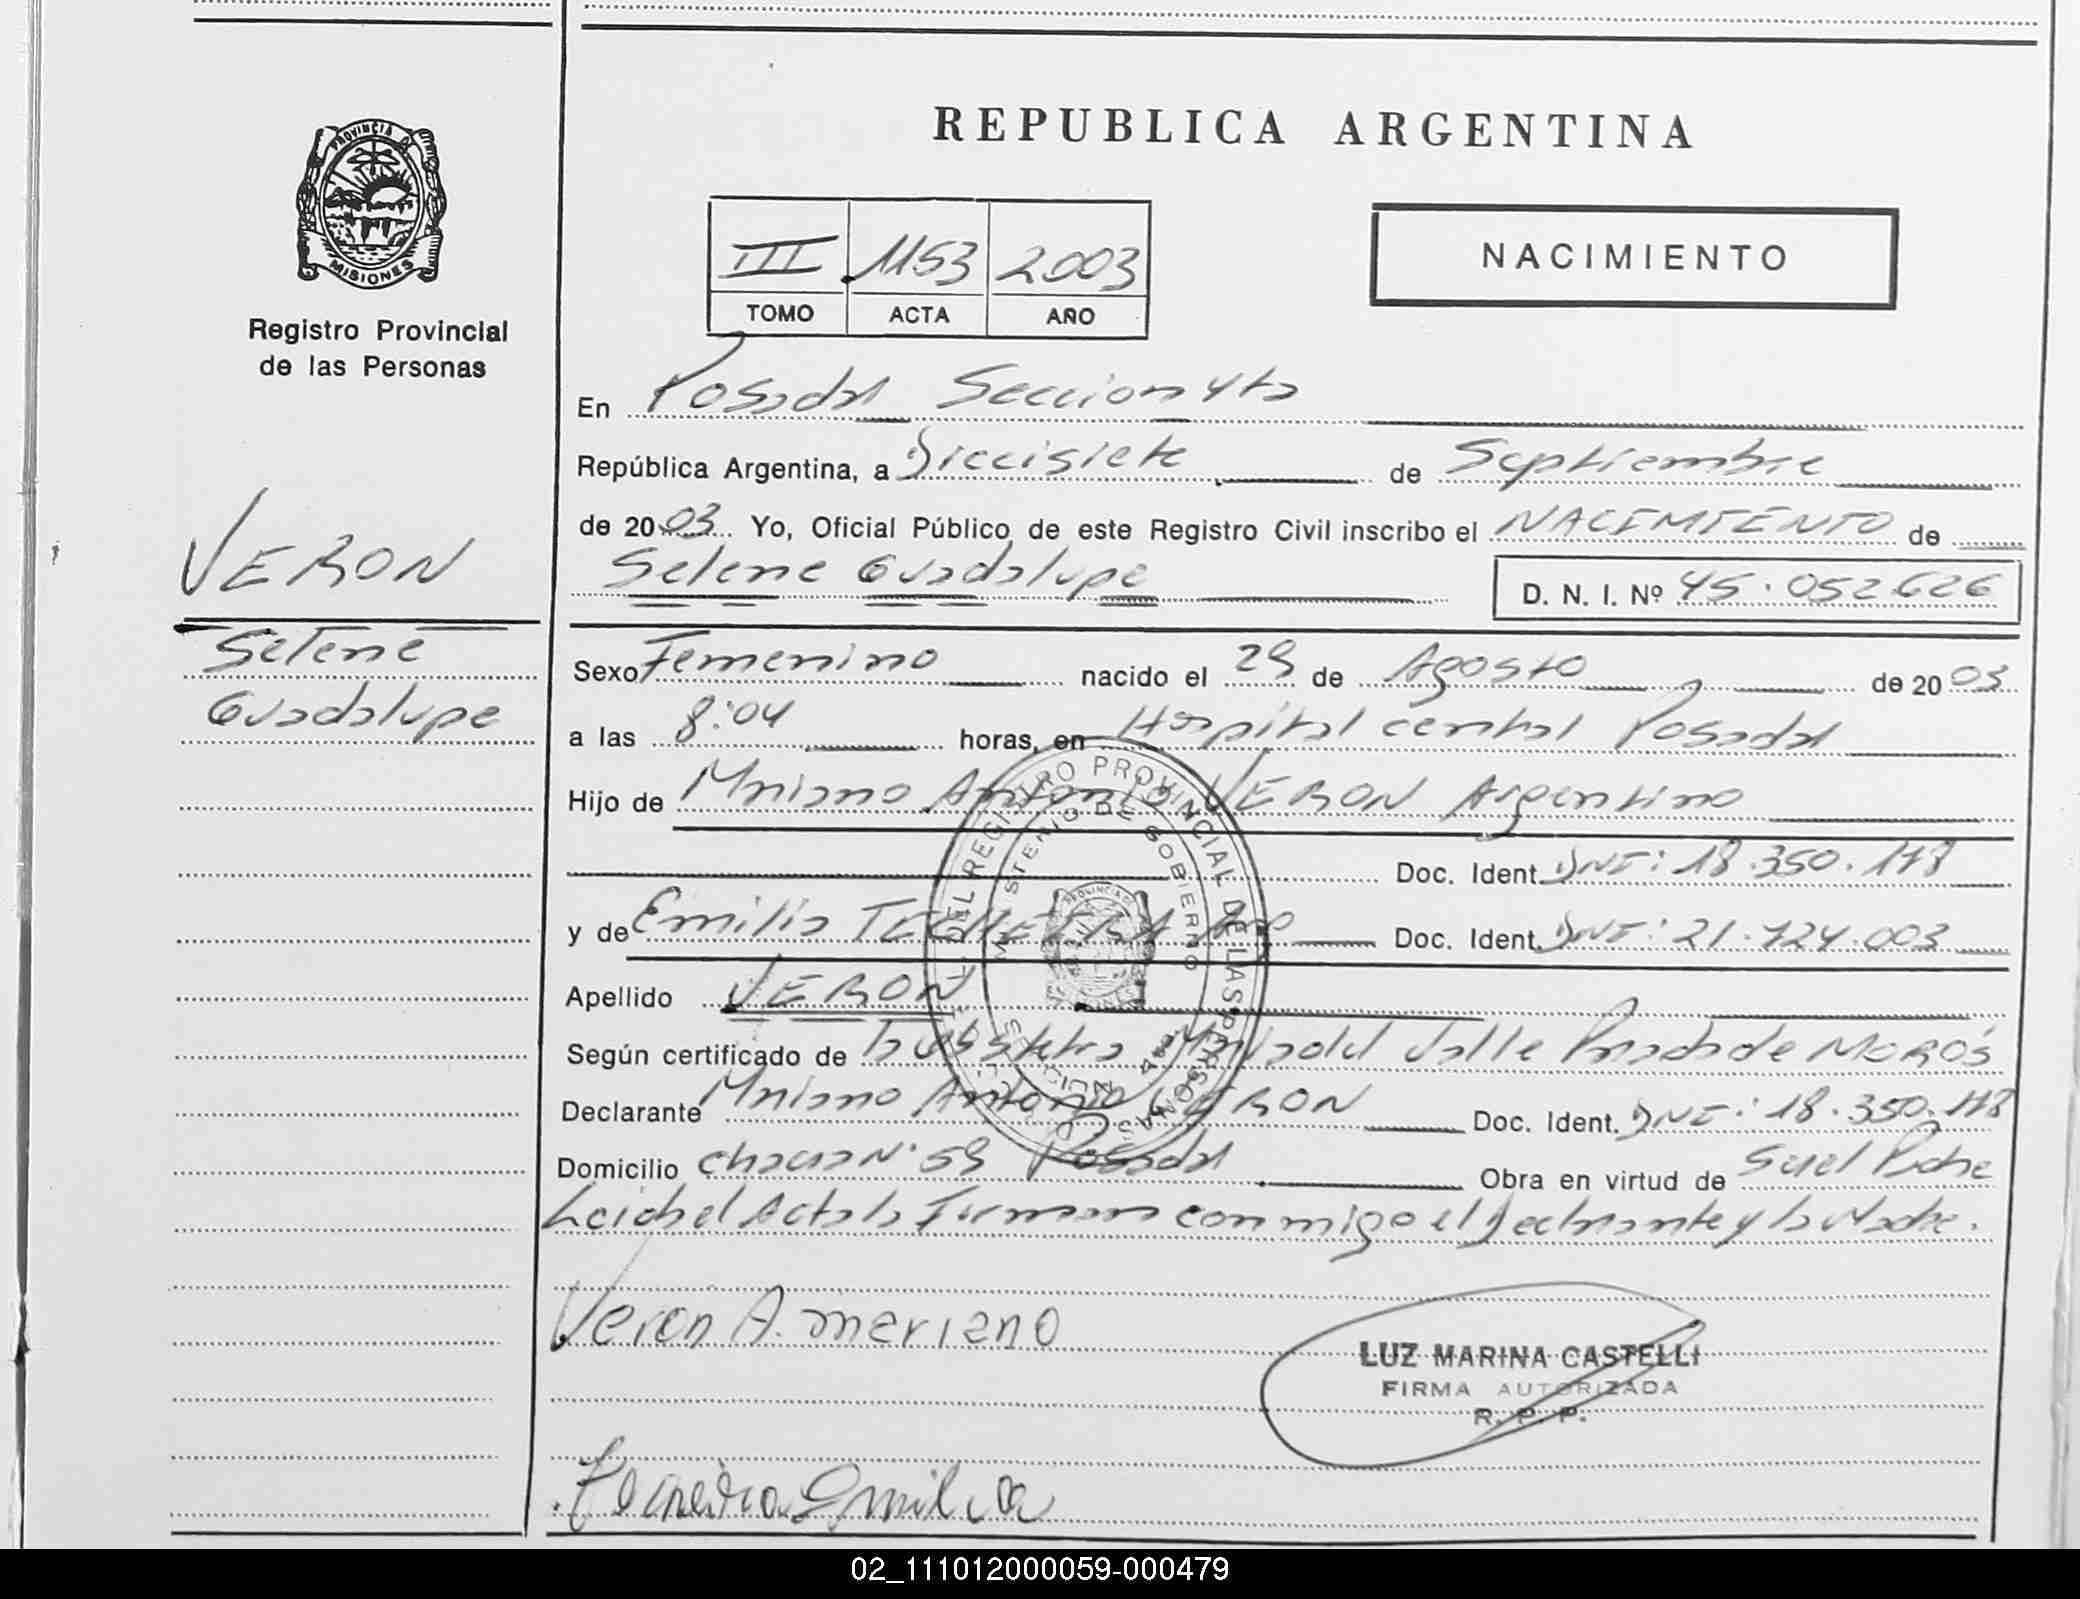 PROVINCIA DE
MISIONES
Registro Provincial
de las Personas
REPUBLICA ARGENTINA
III 1153 2003
TOMO ACTA AÑO
NACIMIENTO
En Posadas Seccion 4ta
República Argentina, a Diecisiete de Septiembre
de 20 03 Yo, Oficial Público de este Registro Civil inscribo el NACIMIENTO de
Selene Guadalupe D. N. I. Nº 45.052.626
VERON
Selene
Guadalupe
Sexo Femenino nacido el 29 de Agosto de 20 03
a las 8:04 horas, en Hospital central Posadas
Hijo de Mariano Antonio VERON Argentino
Doc. Ident. DNI: 18.350.178
y de Emilia Doc. Ident. DNI: 21.724.003
Apellido VERON
Según certificado de la Obstetra Maria del Valle Prada de MOROS
Declarante Mariano Antonio VERON Doc. Ident. DNI: 18.350.178
Domicilio chacra Nº 59 Posadas Obra en virtud de Ser el Padre
Leida el Acta la Firman conmigo el Declarante y la Madre.
Veron A. mariano
LUZ MARINA CASTELLI
FIRMA AUTORIZADA
R. P. P.
Emilia
02_111012000059-000479